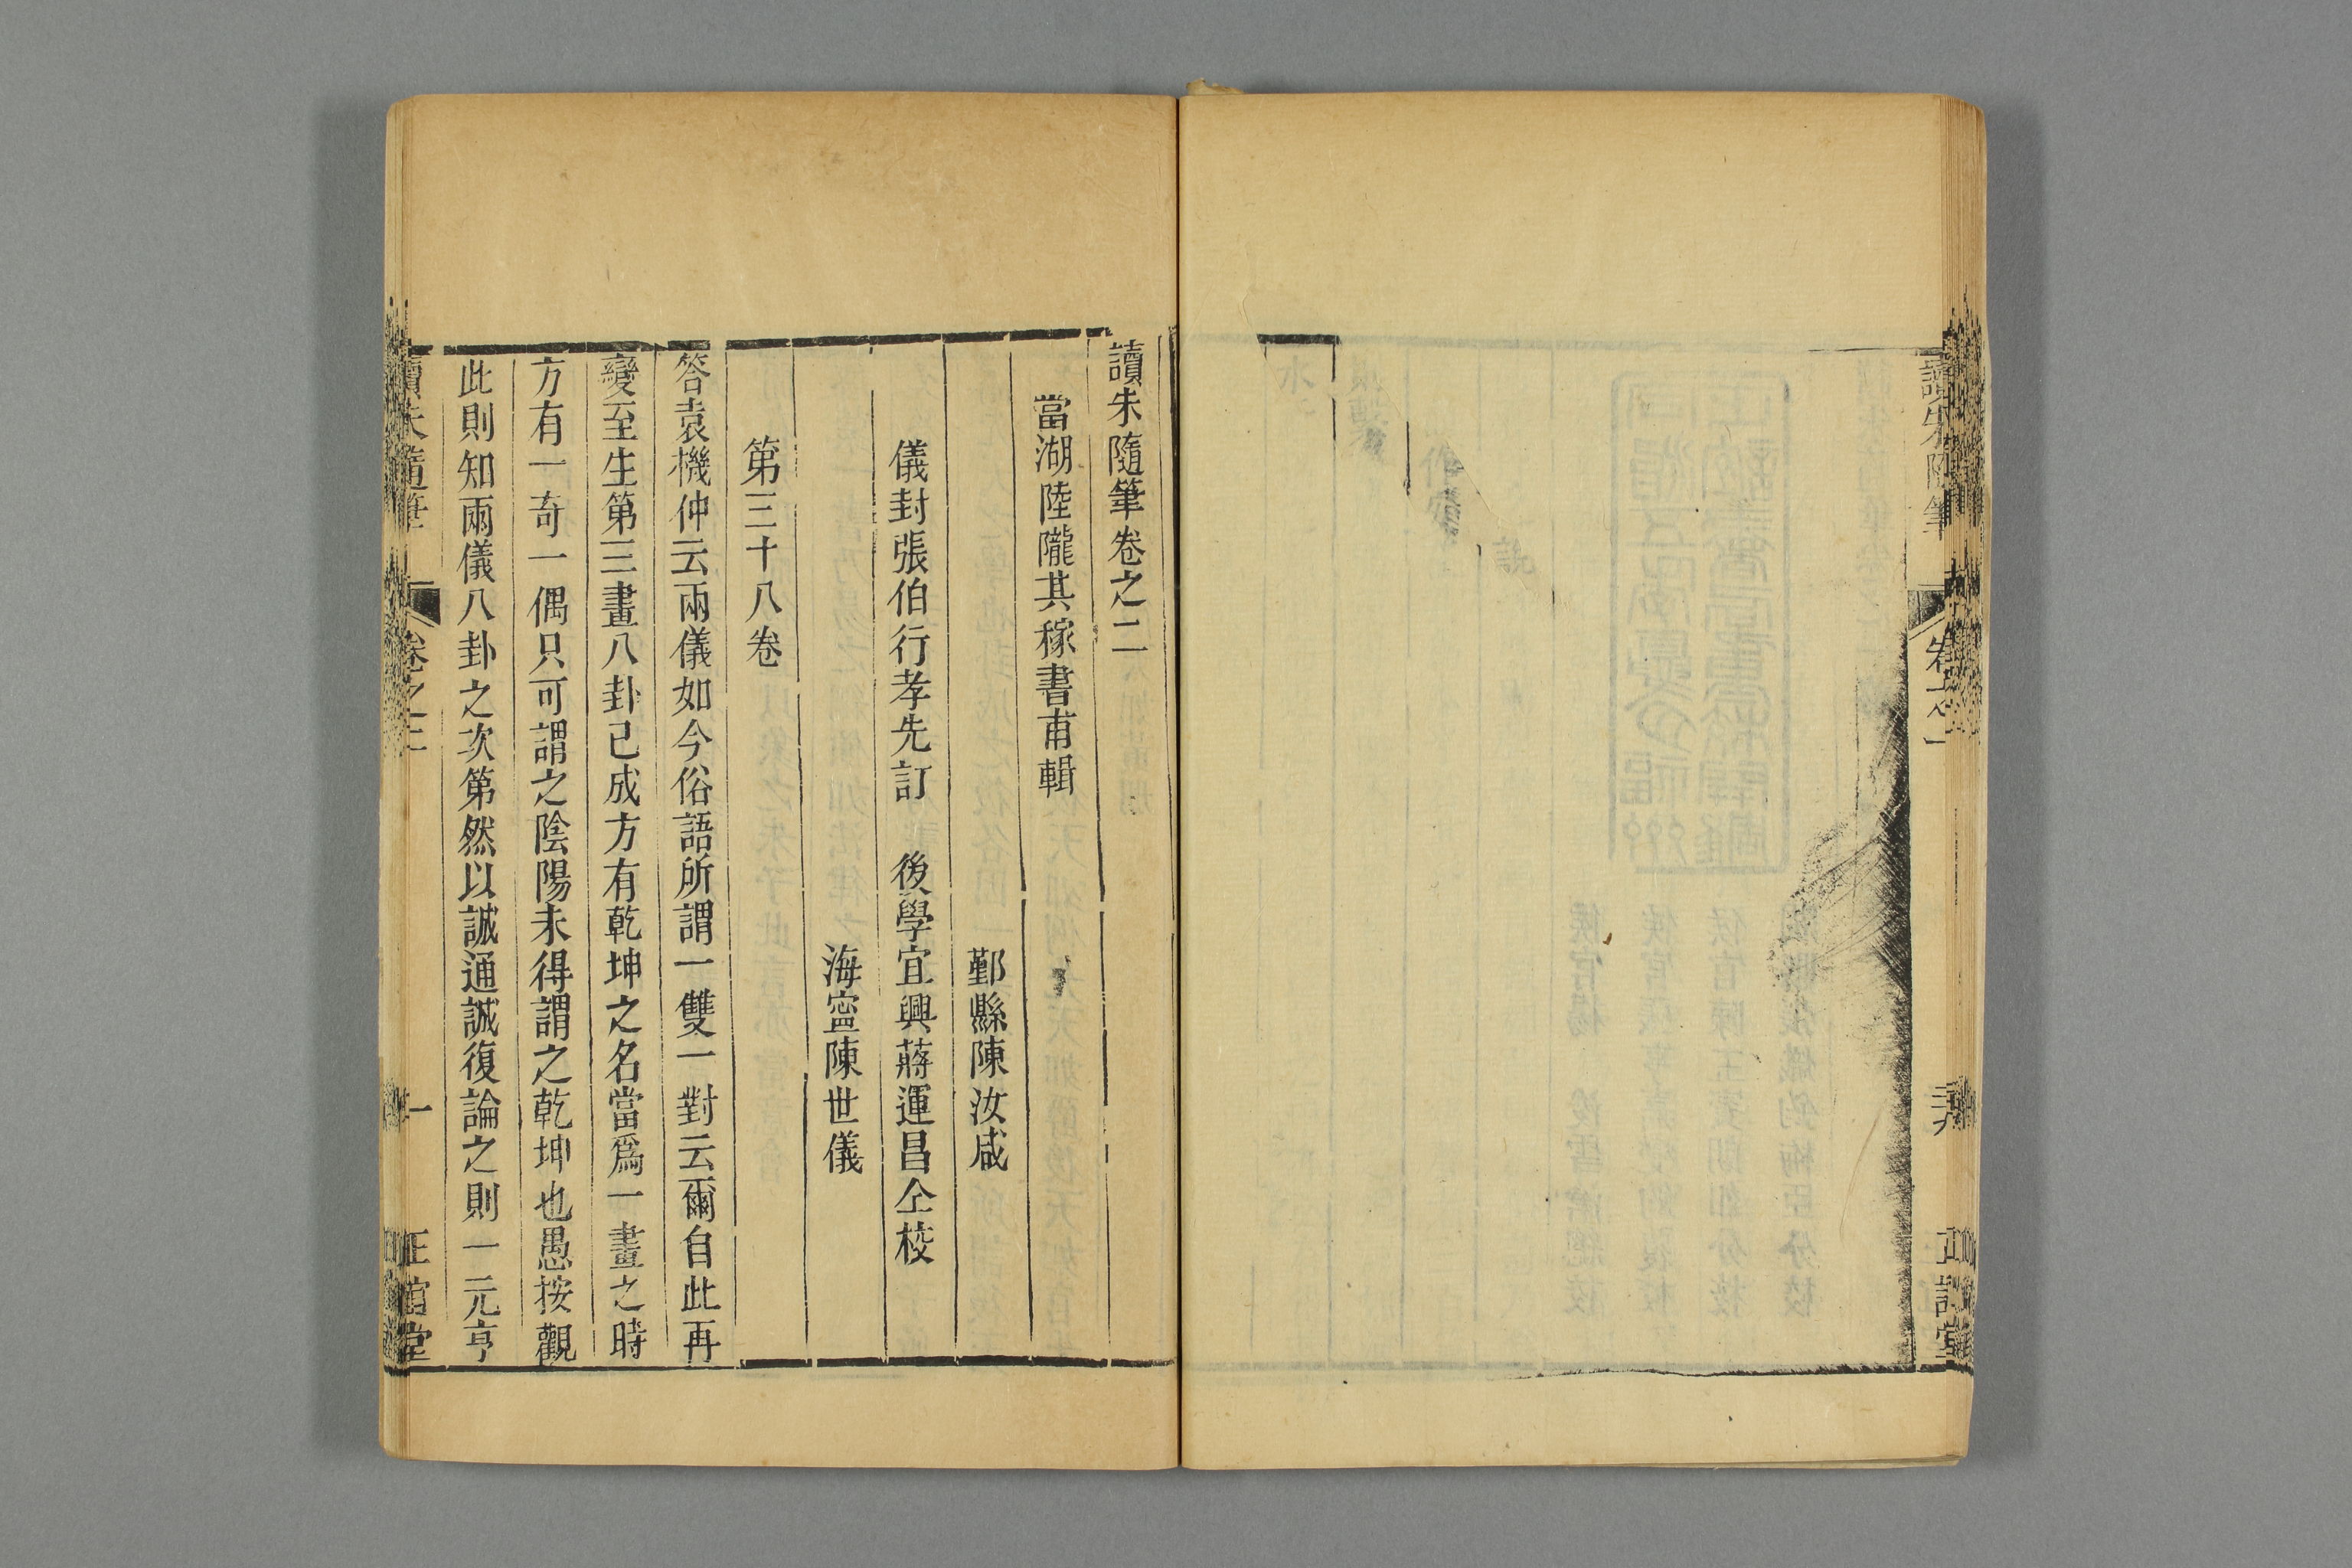 讀朱隨筆
卷之一
正誼堂
讀朱隨筆卷之二
當湖陸隴其稼書甫輯
鄞縣陳汝咸
儀封張伯行孝先訂 後學宜興蔣運昌仝校
海寧陳世儀
第三十八卷
答袁機仲云兩儀如今俗語所謂一雙一對云爾自此再
變至生第三畫八卦已成方有乾坤之名當爲一畫之時
方有一奇一偶只可謂之陰陽未得謂之乾坤也愚按觀
此則知兩儀八卦之次第然以誠通誠復論之則一元亨
讀朱隨筆
卷之二
一
正誼堂